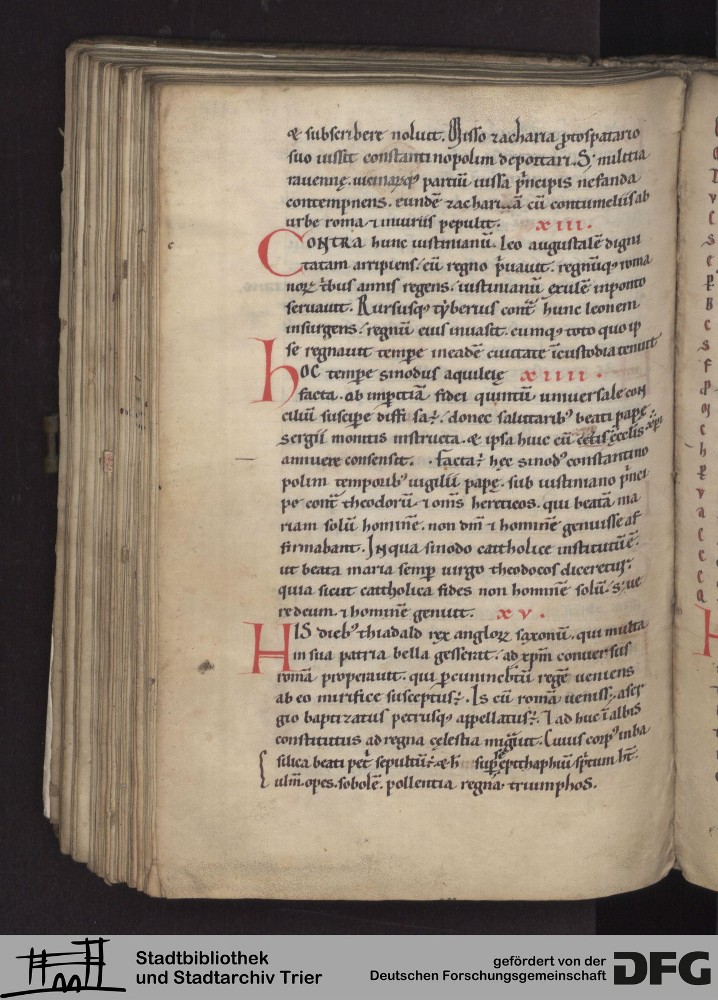 & subscribere noluit. Misso zacharia ꝓtospatario
suo iussit constantinopolim deportari. S; militia
rauennę. uicinarꝗ; partiū iussa pͥncipis nefanda
contempnens. eundē zachariā cū contumeliis ab
urbe roma ⁊ iniuriis pepulit. xiii.
CONTRA hunc iustinianū. leo augustalē digni
tatem arripiens. cū regno pͥuauit. regnūq; roma
noꝝ tͥbus annis regens. iustinianū exulē inponto
seruauit. Rursusq; tẏberius cont̄ hunc leonem
insurgens. regnū eius inuasit. eumq; toto quo ip
se regnauit temꝑe ineadē ciuitate ī custodia tenuit
hOC temꝑe sinodus aquileię xiiii.
facta. ob imꝑitiā fidei quintū uniuersale con
ciliū susciꝑe diffisa.÷ donec salutarib; beati pape
sergii monitis instructa. & ipsa huic cū cęt̄is ęcclis xp̄i
annuere consensit. Facta.÷ hec sinod; constantino
polim temporib; uigilii papę. sub iustiniano pͥnci
pe. cont̄ theodorū. ⁊ om̄s hereticos. qui beatā ma
riam solū hominē. non dm̄ ⁊ hominē genuisse af
firmabant. In qua sinodo catholice institutū ē.
ut beata maria semꝑ uirgo theodocos diceretur.
quia sicut catholica fides non hominē solū. s; ue
re deum. ⁊ hominē genuit. xv.
HIS dieb; thiadald rex angloꝝ saxonū. qui multa
in sua patria bella gesserat. ad xp̄m conuersus
romā properauit. qui
ab eo mirifice susceptus.÷ Is cū romā uenisset. a ser
gio baptizatus petrusq; appellatus.÷ ⁊ ad huc ī albis
constitutus ad regna cęlestia migͣuit. Cuius corp; in ba
silica beati pet̄ sepultū.÷ & h̄ suꝑ se epithaphiū sc̄ptum ht̄.
ulm̄. opes. sobolē. pollentia regna. triumphos.
Stadtbibliothek
und Stadtarchiv Trier
gefördert von der
Deutschen Forschungsgemeinschaft
DFG